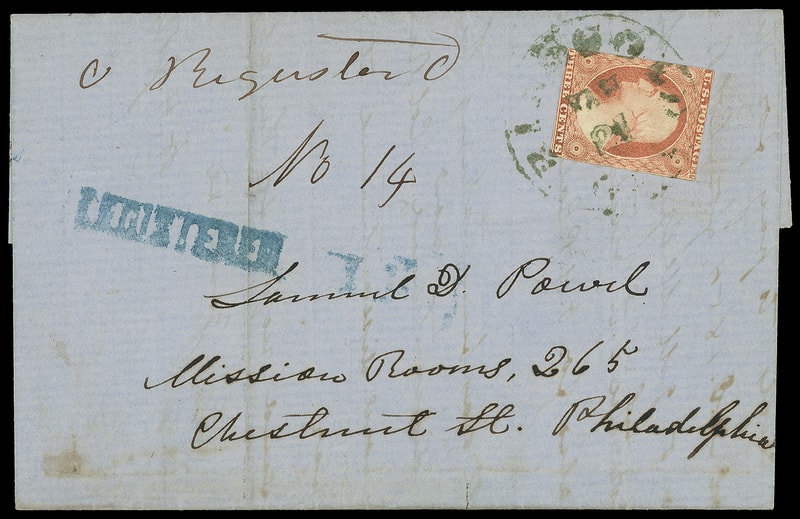 Register
No 14
U.S. POSTAGE
THREE CENTS
Samuel D. Powel
Mission Rooms, 265
Chestnut St. Philadelphia